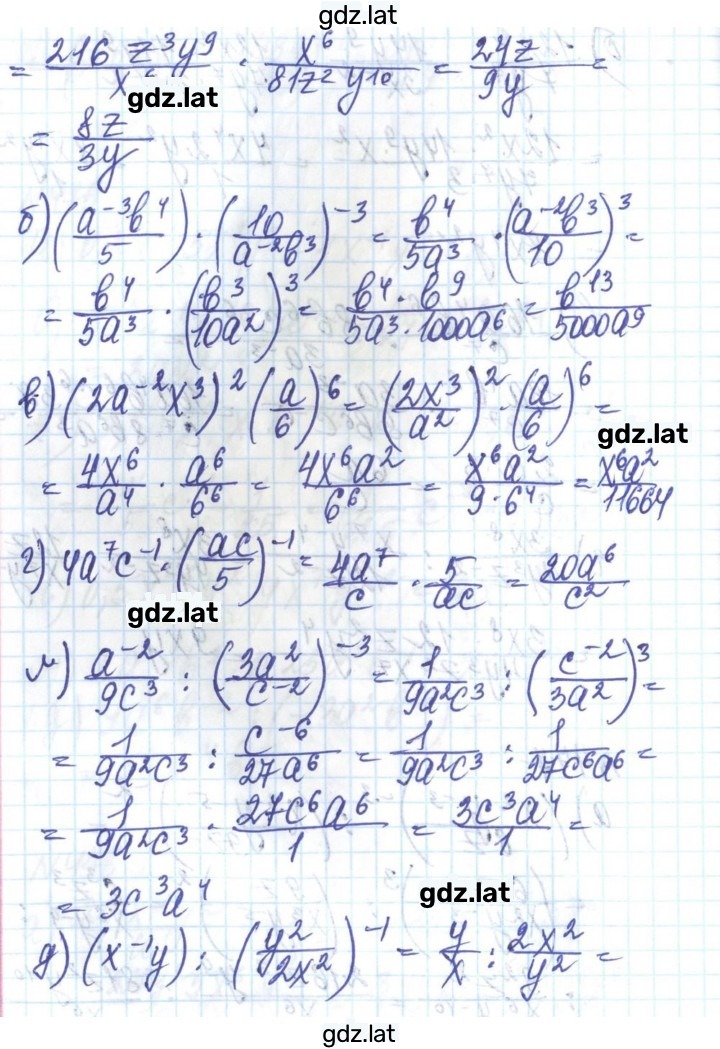 gdz.lat
= 216 z³y⁹ / x⁶ · x⁶ / 81z² y¹⁰ = 24z / 9y =
gdz.lat
= 8z / 3y
б) (a⁻³b⁴ / 5) · (10 / a⁻²b³)⁻³ = b⁴ / 5a³ · (a⁻²b³ / 10)³ =
= b⁴ / 5a³ · (b³ / 10a²)³ = b⁴ · b⁹ / 5a³ · 1000a⁶ = b¹³ / 5000a⁹
в) (2a⁻²x³)² (a / 6)⁶ = (2x³ / a²)² · (a / 6)⁶ =
gdz.lat
= 4x⁶ / a⁴ · a⁶ / 6⁶ = 4x⁶a² / 6⁶ = x⁶a² / 9 · 6⁴ = x⁶a² / 11664
г) 4a⁷c⁻¹ · (ac / 5)⁻¹ = 4a⁷ / c · 5 / ac = 20a⁶ / c²
gdz.lat
м) a⁻² / 9c³ : (3a² / c⁻²)⁻³ = 1 / 9a²c³ : (c⁻² / 3a²)³ =
= 1 / 9a²c³ : c⁻⁶ / 27a⁶ = 1 / 9a²c³ : 1 / 27c⁶a⁶ =
= 1 / 9a²c³ · 27c⁶a⁶ / 1 = 3c³a⁴ / 1 =
= 3c³a⁴
gdz.lat
д) (x⁻¹y) : (y² / 2x²)⁻¹ = y / x : 2x² / y² =
gdz.lat